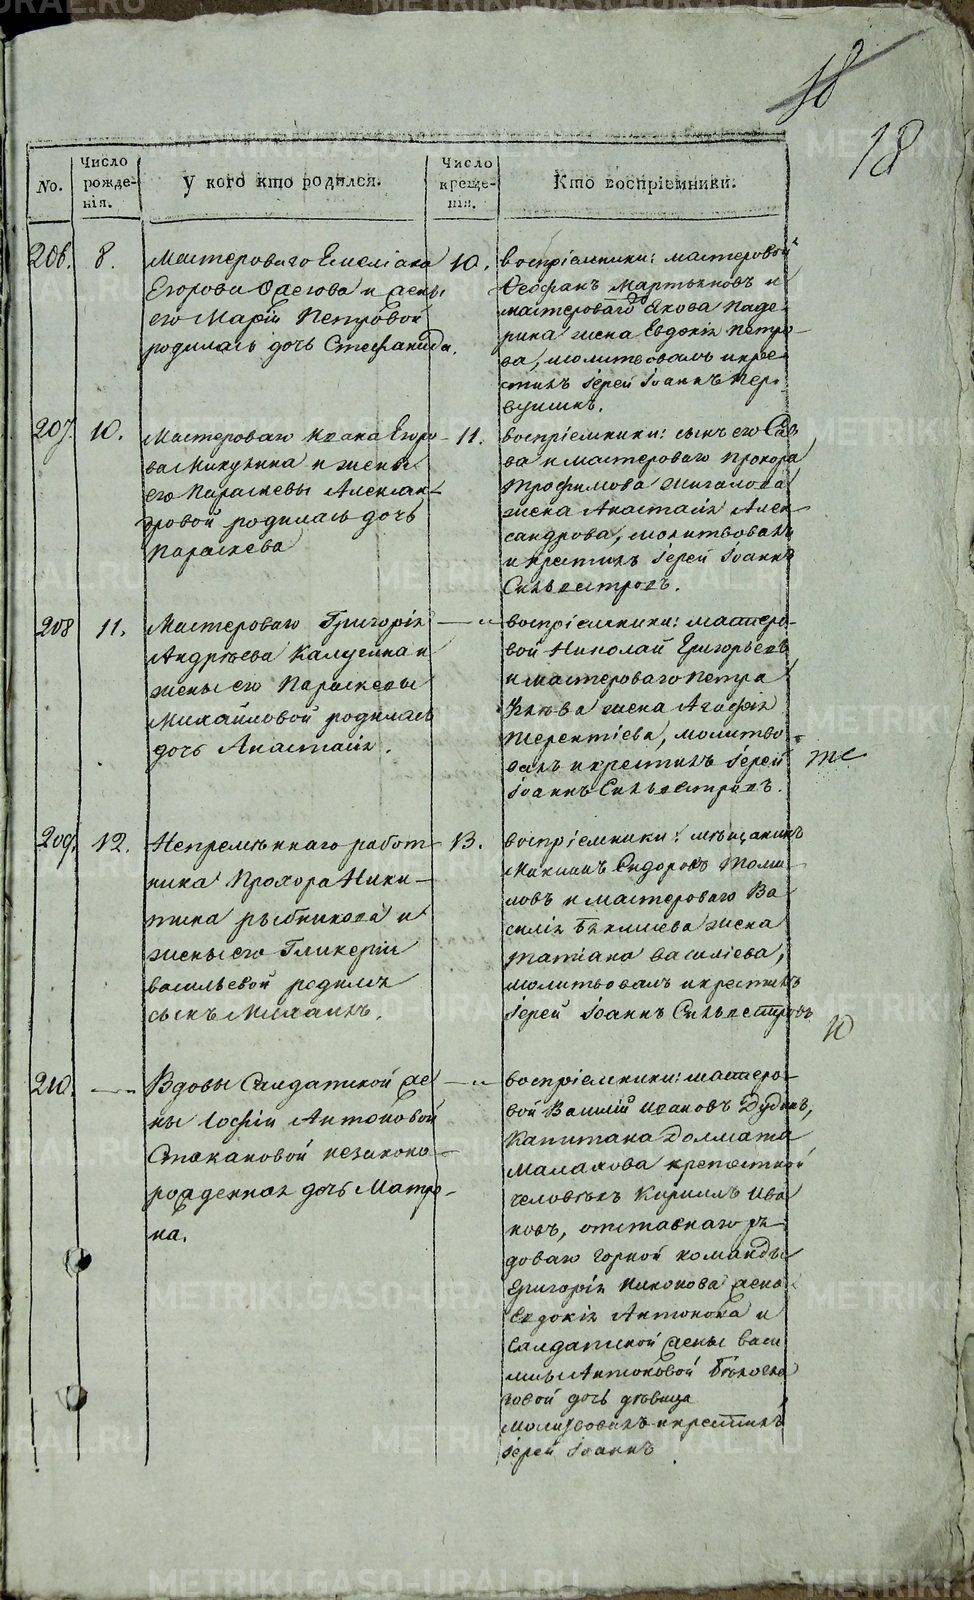 18
18
No.
Число рожде-нія.
У кого кто родился.
Число креще-нія.
Кто воспріемники.
206.
8.
Мастероваго Емеліана
Егорова и жены
его Маріи Петровой
родилась дочь Стефанида.
10.
воспріемники: мастеровой
Феофанъ Мартыновъ и
мастероваго Якова Паде-
рина жена Евдокія Петро-
ва, молитвовалъ и кре-
стилъ Іерей Іоаннъ Пер-
вушинъ.
207.
10.
Мастероваго Ивана Егоро-
ва Никулина и жены
его Параскевы Алексан-
дровой родилась дочь
Параскева
11.
воспріемники: сынъ его Сав-
ва и мастероваго Прохора
Трофимова Жигалова
жена Анастасія Алек-
сандрова, молитвовалъ
и крестилъ Іерей Іоаннъ
Сильвестровъ.
208
11.
Мастероваго Григорія
Андрѣева Калугина и
жены его Параскевы
Михайловой родилась
дочь Анастасія.
—„—
воспріемники: мастеро-
вой Николай Григорьевъ
и мастероваго Петра
жена Агафія
Терентіева, молитво-
валъ и крестилъ Іерей
Іоаннъ Сильвестровъ.
те
209.
12.
Непремѣннаго работ-
ника Прохора Ники-
тина Рыбникова и
жены его Гликеріи
Васильевой родился
сынъ Михаилъ.
13.
воспріемники: мѣщанинъ
Михаилъ Сидоровъ Томи-
ловъ и мастероваго Ва-
силія Бѣклишева жена
Татіана Васильева,
молитвовалъ и крестилъ
Іерей Іоаннъ Сильвестровъ
10
210.
—„—
Вдовы Салдатской же-
ны Софіи Антоновой
Стакановой незаконо-
рожденная дочь Матро-
на.
—„—
воспріемники: мастеро-
вой Василій Ивановъ Дудинъ,
Капитана Долмата
Малахова крепостной
человѣкъ Кириллъ Ива-
новъ, отставнаго ря-
доваго горной команды
Григорія Никонова жена
Евдокія Антонова и
Салдатской жены Васи-
лисы Антоновой
дочь дѣвица
Молитвовалъ и крестилъ
Іерей Іоаннъ
METRIKI.GASO-URAL.RU